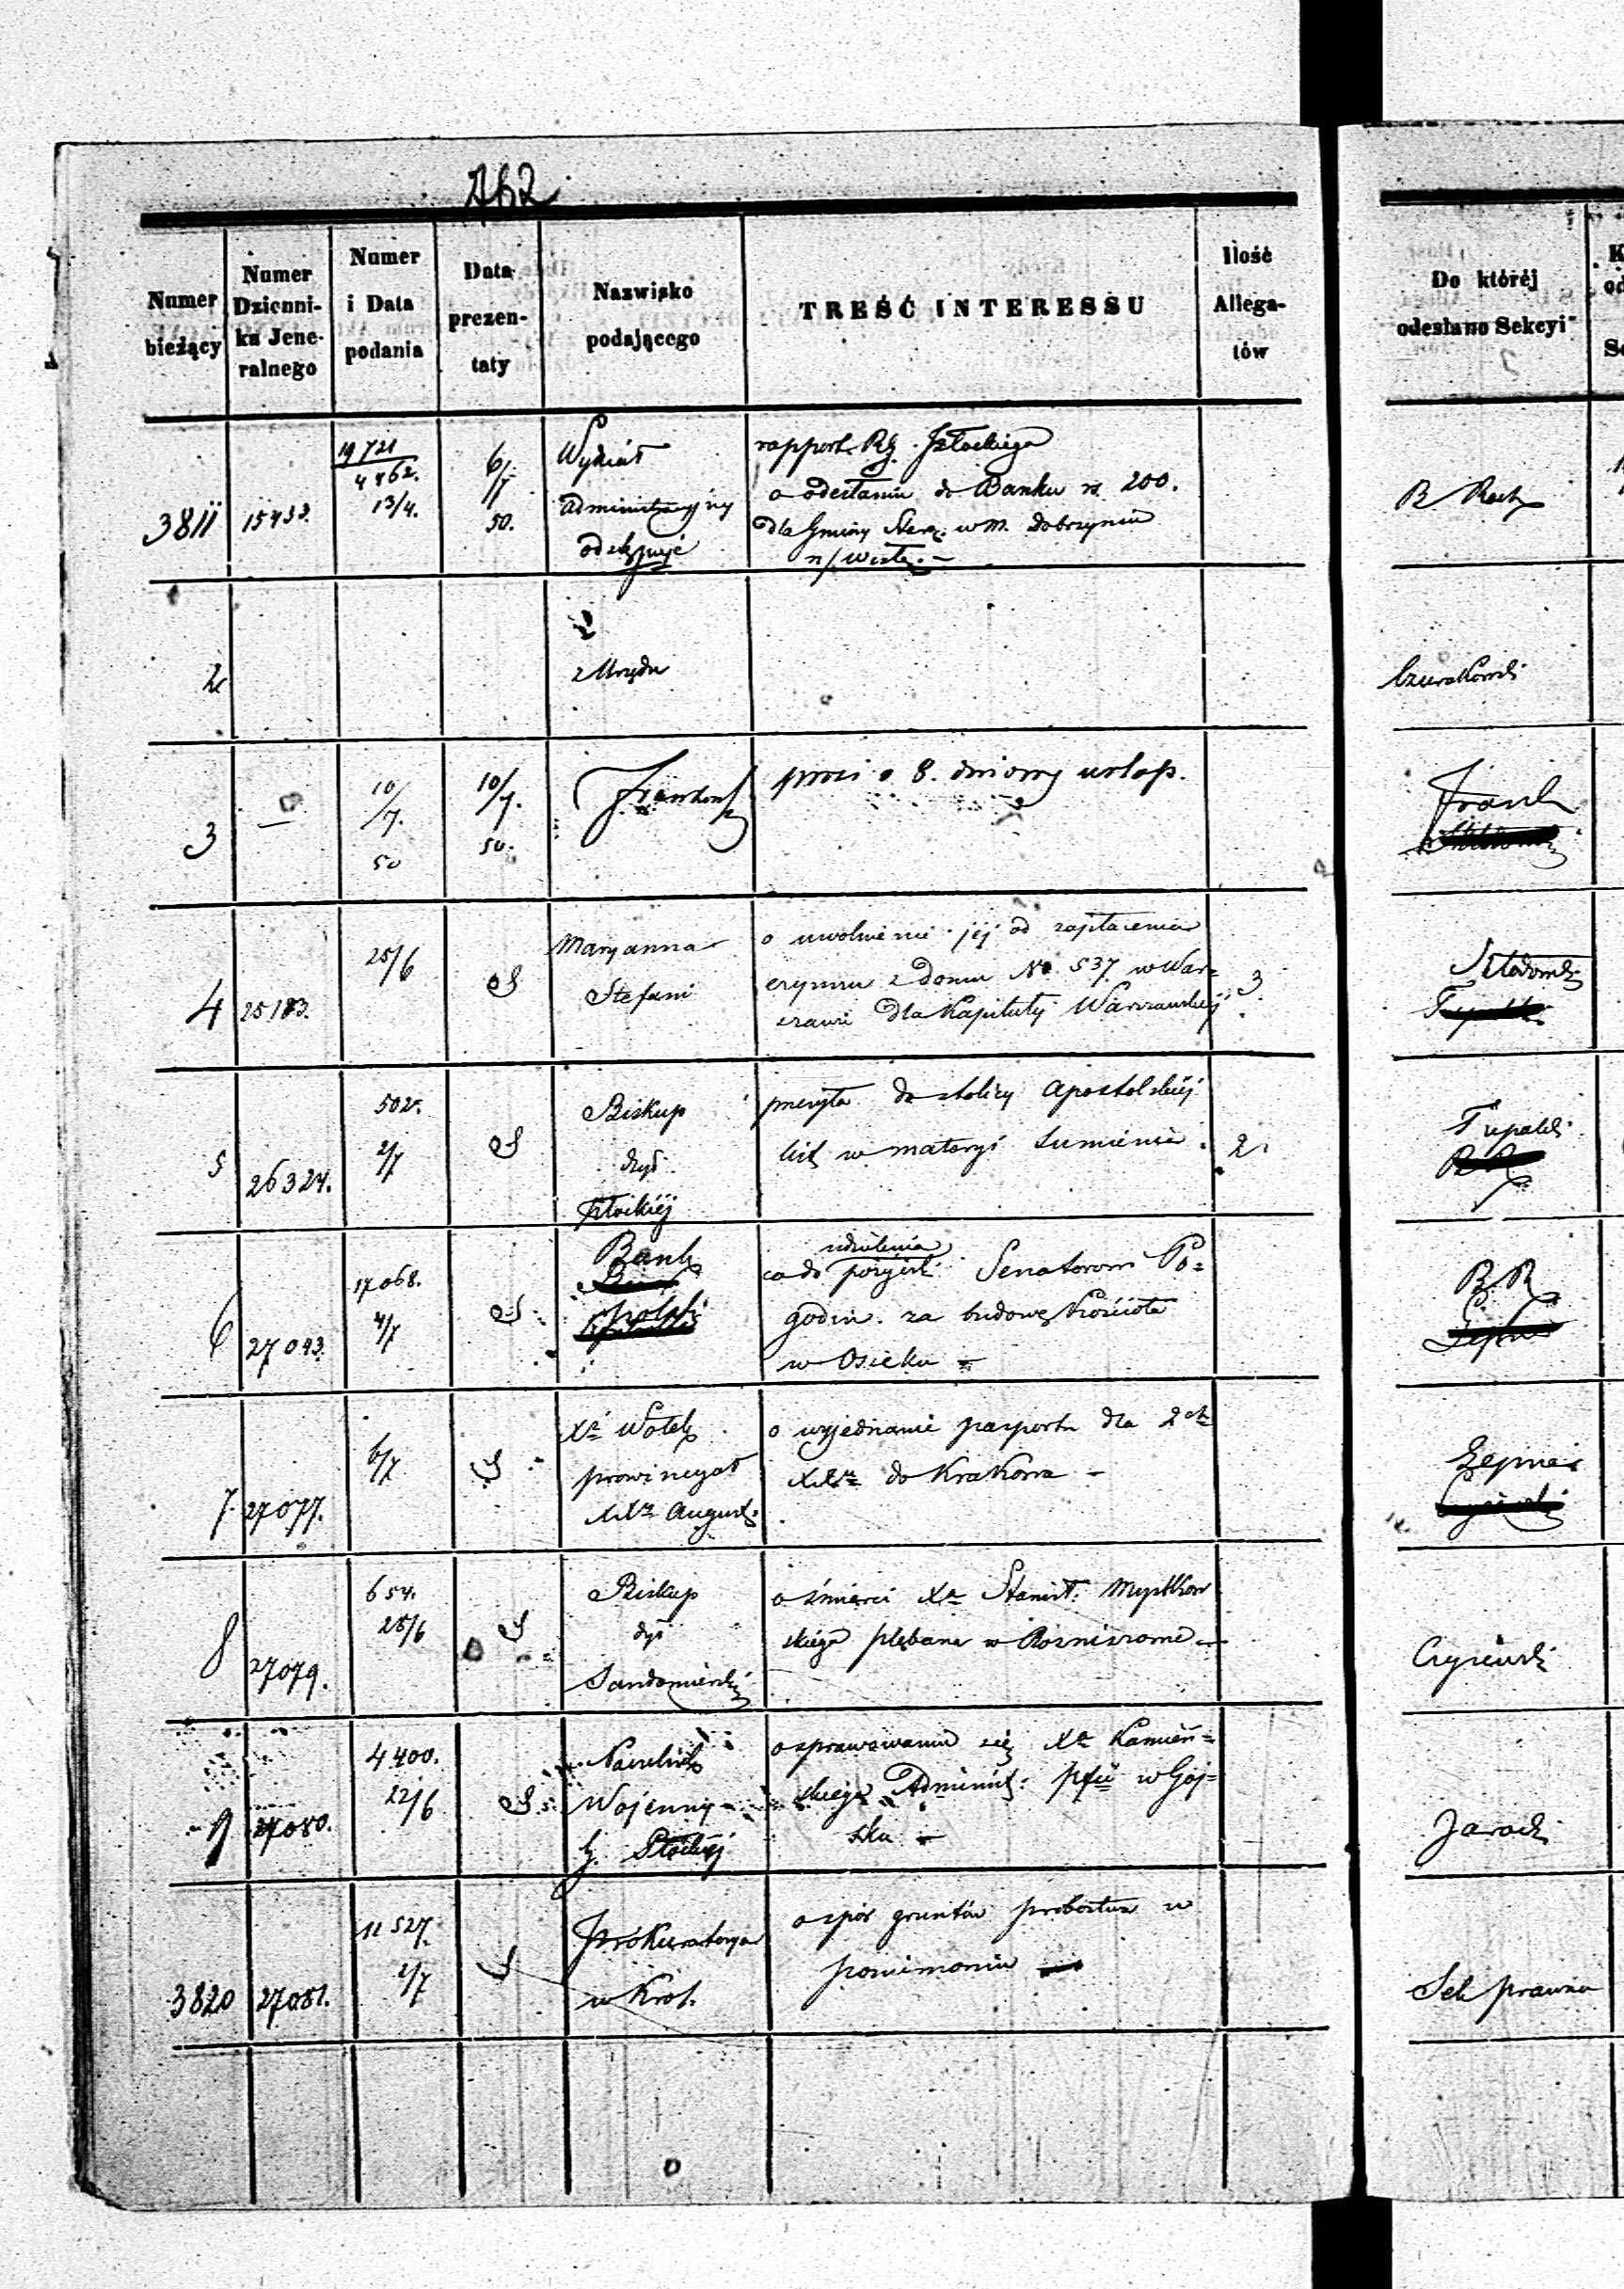 262
Numer bieżący
Numer Dzienni- ka Jene- ralnego
Numer i Data podania
Data prezen- taty
Nazwisko podającego
TREŚĆ INTERESSU
Ilość Allega- tów
Do któréj odesłano Sekcyi
3811 15433. 19721 4462. 13/4. 6/7 50.
Wydział
administracyjny
rapport RG. Płockiego
o odesłaniu do Banku rs. 200.
dla Gminy w m. Dobrzyniu
n/Wisłą. –
B Rach
2
z Urzędu
3 — 10/7. 50 10/7. 50.
Frankows
prosi o 8. dniowy urlop.
Frank
4 25183. 25/6 S
Maryanna
Stefani
o uwolnienie jej od zapłacenia
czynszu z domu No 537 w War=
szawie dla Kapituły Warszawskiej
3.
5 26324. 502. 2/7 S
Biskup
dyś.
Płockiéj
przesyła do stolicy Apostolskiéj
list w materyi sumienia.
2.
6 27043. 17068. 4/7 S.
Bank
Polski
co do udzielenia pożyczki Senatorom Po=
godin. za budowę Kościoła
w Osieku =
BR
7. 27077. 6/7 S
Xs Wołek
prowincyał
XXw August.
o wyjednanie paszportu dla 2ch
XXzy do Krakowa –
8 27079. 654. 28/6 S
Biskup
dyś
Sandomierski
o śmierci Xa Stanisł. Myszkow
skiego plebana w Rozniszowie –
Czyżewski
9 27080. 4400. 22/6 S
Naczelnik
Wojenny
G. Płockiéj
o sprawowaniu się Xa Kamień=
skiego Administ. pfii w Goj=
sku –
Jarocki
3820 27081. 11527. 2/7 S
Prokuratorya
w Król.
o spór gruntów probostwa w
poniemoniu —
Sek prawna